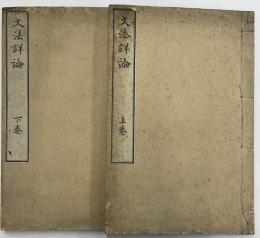 文法詳論
上卷
文法詳論
下卷